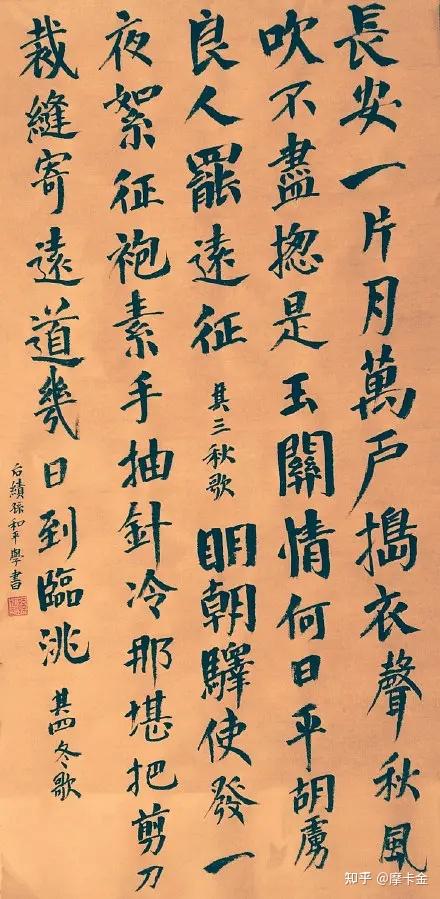 長安一片月萬戶搗衣聲秋風
吹不盡揔是玉關情何日平胡虜
良人罷遠征 其三秋歌 明朝驛使發一
夜絮征袍素手抽針冷那堪把剪刀
裁縫寄遠道幾日到臨洮 其四冬歌
后績孫和平學書
知乎 @摩卡金